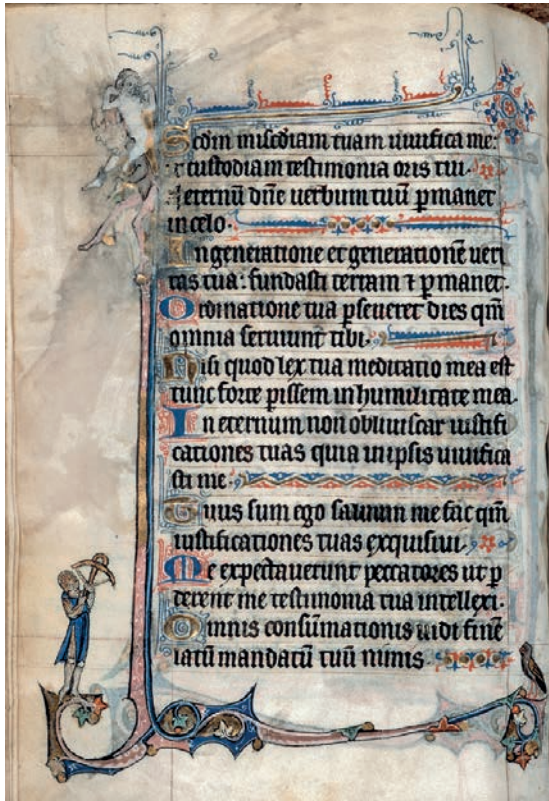 Scdm mis̄cdiam tuam uiuifica me:
⁊ custodiam testimonia oris tui.
In eternū dn̄e uerbum tuū ꝑmanet
in celo.
In generatione et generationē ueri
tas tua: fundasti terram ⁊ ꝑmanet.
Ordinatione tua ꝑseueret dies qm̄
omnia seruiunt tibi.
Nisi quod lex tua meditatio mea est
tunc forte ꝑissem in humilitate mea.
In eternum non obliuiscar iustifi
cationes tuas quia in ipsis uiuifica
sti me.
Tuus sum ego saluum me fac qm̄
iustificationes tuas exquisiui.
Me expectauerunt peccatores ut ꝑ
derent me testimonia tua intellexi.
Omnis consūmationis uidi finē
latū mandatū tuū nimis.